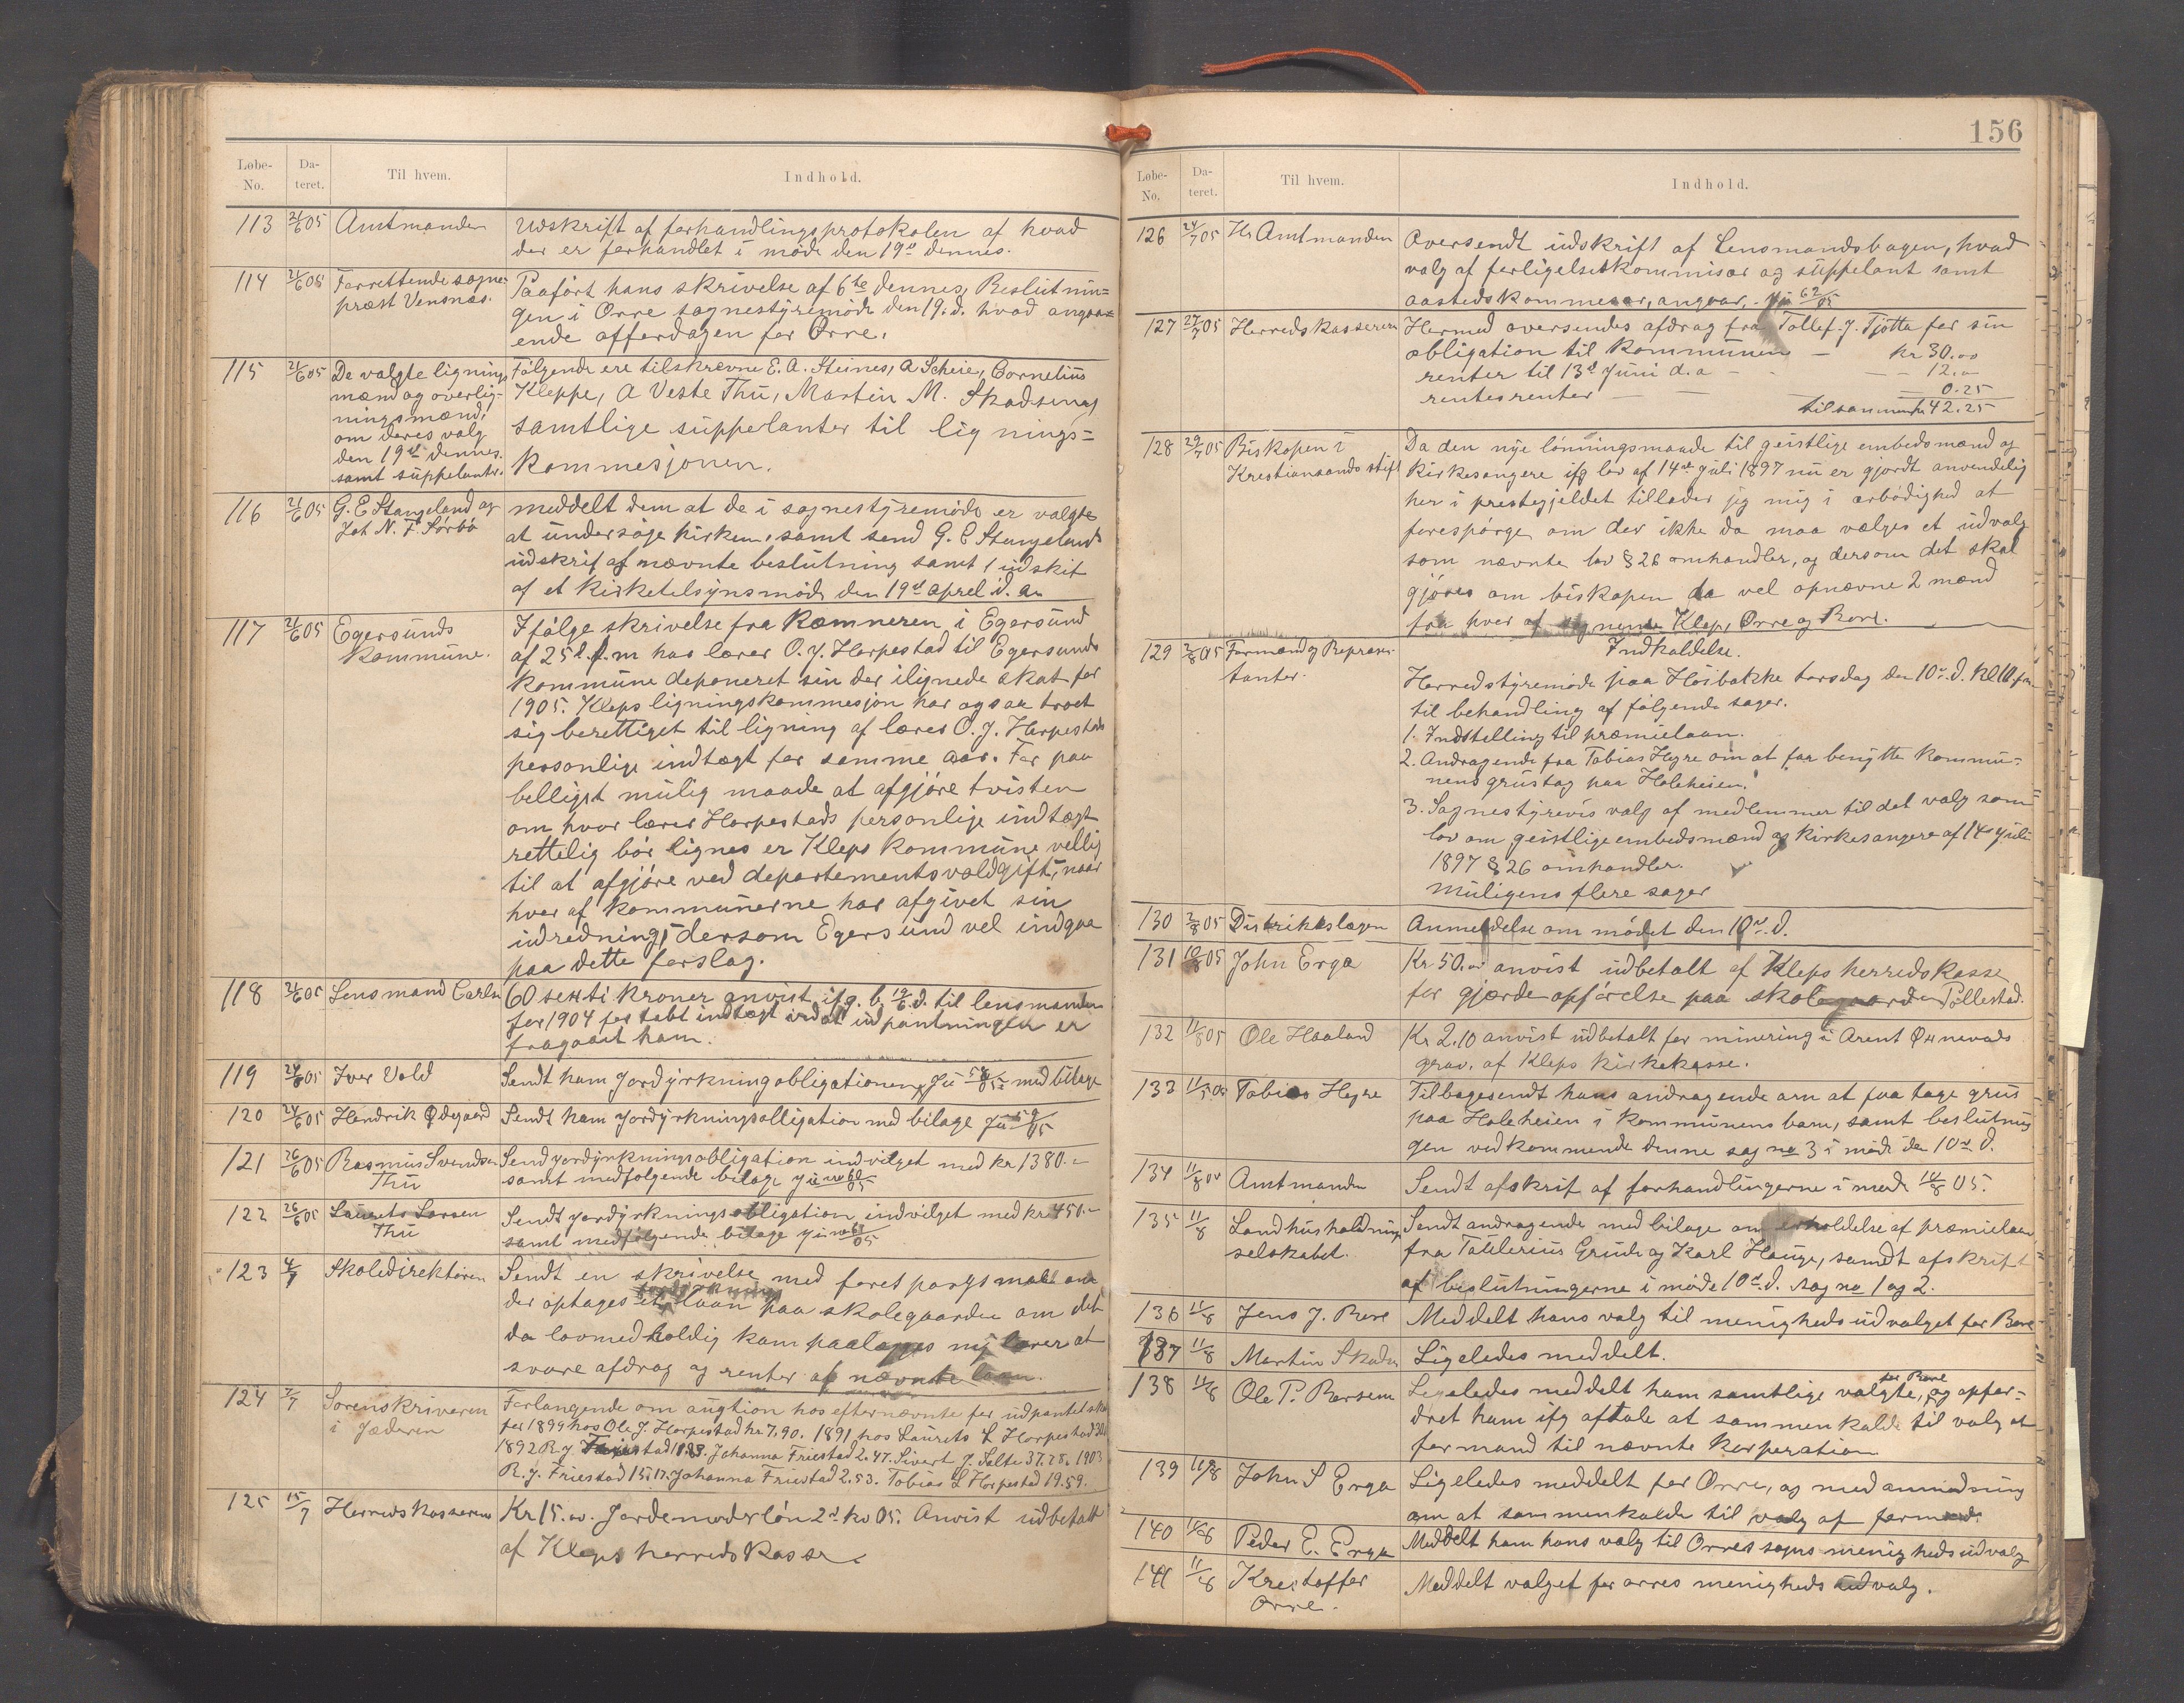 Løbe-No. Da-teret. Til hvem. Indhold.
113 21/6 05 Amtmanden Udskrift af forhandlingsprotokolen af hvad
der er forhandlet i møde den 19de dennes.
114 21/6 05 Forrettende sogne- Paaført hans skrivelse af 6te dennes, Beslutnin=
præst Vensnæs. gen i Orre sognestyremøde den 19. d. hvad angaa=
ende offerdagen for Orre.
115 21/6 05 De valgte lignings Følgende ere tilskrevne E. A. Steines, A Scheie, Cornelius
mænd og overlig- Kleppe, A Veste Thu, Martin M. Skadsem,
ningsmænd,
om deres valg samtlige suppelanter til lignings=
den 19de dennes.
samt suppelanter. kommesjonen.
116 21/6 05 G. E Stangeland og meddelt dem at de i sognestyremøde er valgte
Joh N. F. Sørbø at undersøge kirken, samt send G. E Stangeland
udskrif af nævnte beslutning samt 1 udskit
af et kirketilsynsmøde den 19de aprel d. a.
117 21/6 05 Egersunds Ifølge skrivelse fra Kæmneren i Egersund
Kommune. af 25 f. m har lærer O. J. Horpestad til Egersunds
kommune deponeret sin der ilignede skat for
1905. Kleps ligningskommesjon har ogsaa troet
sig berettiget til ligning af lærer O. J. Horpestads
personlige indtægt for samme aar. For paa
belligst mulig maade at afgjøre tvisten
om hvor lærer Horpestads personlige indtægt
rettelig bør lignes er Kleps kommune vellig
til at afgjøre ved departementsvoldgift, naar
hver af kommunerne har afgivet sin
udredning, dersom Egersund vel indgaa
paa dette forslag.
118 21/6 05 Lensmand Carlsen 60 sexti kroner anvist ifg. b 19/6 d. til lensmanden
for 1904 for tabt indtægt ved at udpantningen er
fragaaet ham.
119 24/6 05 Iver Vold Sendt ham Jordyrkningobligationen, Ju 58/05 med bilage
120 24/6 05 Hendrik Ødegaard Sendt ham Jordyrkningsobligation med bilage Ju 59/05
121 26/6 05 Rasmus Svendsen Send jordyrkningsobligation indvilget med kr 1380.-
Thu samt medfølgende bilage Ju no 60/05
122 26/6 05 Laurets Larsen Sendt jordyrkningsobligation indvilget med kr 450.-
Thu samt medfølgende bilage Ju no 61/05
123 4/7 Skoledirektøren Sendt en skrivelse med forespørgsmaal om
der optages et laan paa skolegaarden om det
da lovmedholdig kan paalægges ny lærer at
svare afdrag og renter af nævnte laan.
124 7/7 Sorenskriveren Forlangende om augtion hos efternævnte for udpantet skat
i Jæderen for 1899 hos Ole J. Horpestad kr 7.90. 1891 hos Laurets L Horpestad
1892 R. J Friestad Johanna Friestad 2.47. Sivert J. Salte 37.28. 1903
R. J. Friestad 15.17. Johanna Friestad 2.53. Tobias L Horpestad 19.59.
125 15/7 Herredskasseren Kr 15.00. Jordemoderløn 2det kv 05. Anvist udbetalt
af Kleps herredskasse.
156
Løbe-No. Da-teret. Til hvem. Indhold.
126 24/7 05 Hr Amtmanden Oversendt udskrift af Lensmandsbogen, hvad
valg af forligelseskommisær og suppelant samt
aastedskommesær, angaar, Ju 62/05
127 27/7 05 Herredskasseren Hermed oversendes afdrag fra Tollef. J. Tjøtta for sin
obligation til kommunen – kr 30.00
renter til 13de Juni d. a - - - - 12.00
rentesrenter — — 0.25
tilsammen kr 42.25
128 29/7 05 Biskopen i Da den nye lønningsmaade til geistlige embedsmænd og
Krestiansands stift kirkesangere ifg lov af 14de juli 1897 nu er gjordt anvendelig
her i prestegjeldet tillader jeg mig i ærbødighed at
forespørge om der ikke da maa vælges et udvalg
som nævnte lov § 26 omhandler, og dersom det skal
gjøres om biskopen da vel opnævne 2 mænd
fra hver af sognene Klep, Orre og Bore.
129 2/8 05 Formænd og Repræsen- Indkaldelse.
tanter. Herredstyremøde paa Høibakke torsdag den 10de d. Kl 10 fm
til behandling af følgende sager.
1. Indstilling til præmielaan.
2. Andragende fra Tobias Hogre om at faa benytte kommu=
nens grustag paa Holeheien.
3. Sognestyrevis valg af medlemmer til det valg som
lov om geistlige embedsmænd og kirkesangere af 14 juli
1897 § 26 omhandler.
Muligens flere sager
130 2/8 05 Distrikslægen Anmeldelse om mødet den 10de d.
131 10/8 05 John Erga Kr 50.00 anvist udbetalt af Kleps herredskasse
for gjærde opførelse paa skolegaarden Pollestad.
132 11/8 05 Ole Haaland Kr 2.10 anvist udbetalt for minering i Arent
grav, af Kleps kirkekasse.
133 11/8 05 Tobias Hogre Tilbagesendt hans andragende om at faa tage grus
paa Holeheien i kommunens bam, samt beslutnin
gen vedkommende denne sag no 3 i møde den 10de d.
134 11/8 05 Amtmanden Sendt afskrif af forhandlingerne i møde 10/8 05.
135 11/8 Landhusholdnings Sendt andragende med bilage om erholdelse af præmielaan
selskabet. fra Taulerius Grude og Karl Hauge, samdt afskrift
af beslutningerne i møde 10de d. sag no 1 og 2.
136 11/8 Jens J. Bore Meddelt hans valg til menighedsudvalget for Bore
137 11/8 Martin Skadsem Ligeledes meddelt.
138 11/8 Ole P. Borsem Ligeledes meddelt ham samtlige valgte, for Bore og opfor=
dret ham ifg aftale at sammenkalde til valg af
formand til nævnte korperation
139 11/8 John S Erga Ligeledes meddelt for Orre, og med anmodning
om at sammenkalde til valg af formand.
140 11/8 Peder E. Erga Meddelt ham hans valg til Orres sogns menighedsudvalg
141 11/8 Krestoffer Meddelt valget for orres menigheds udvalg.
Orre.